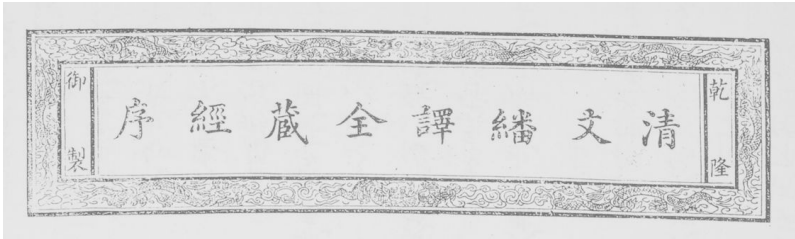 乾隆
清文繙譯全藏經序
御製